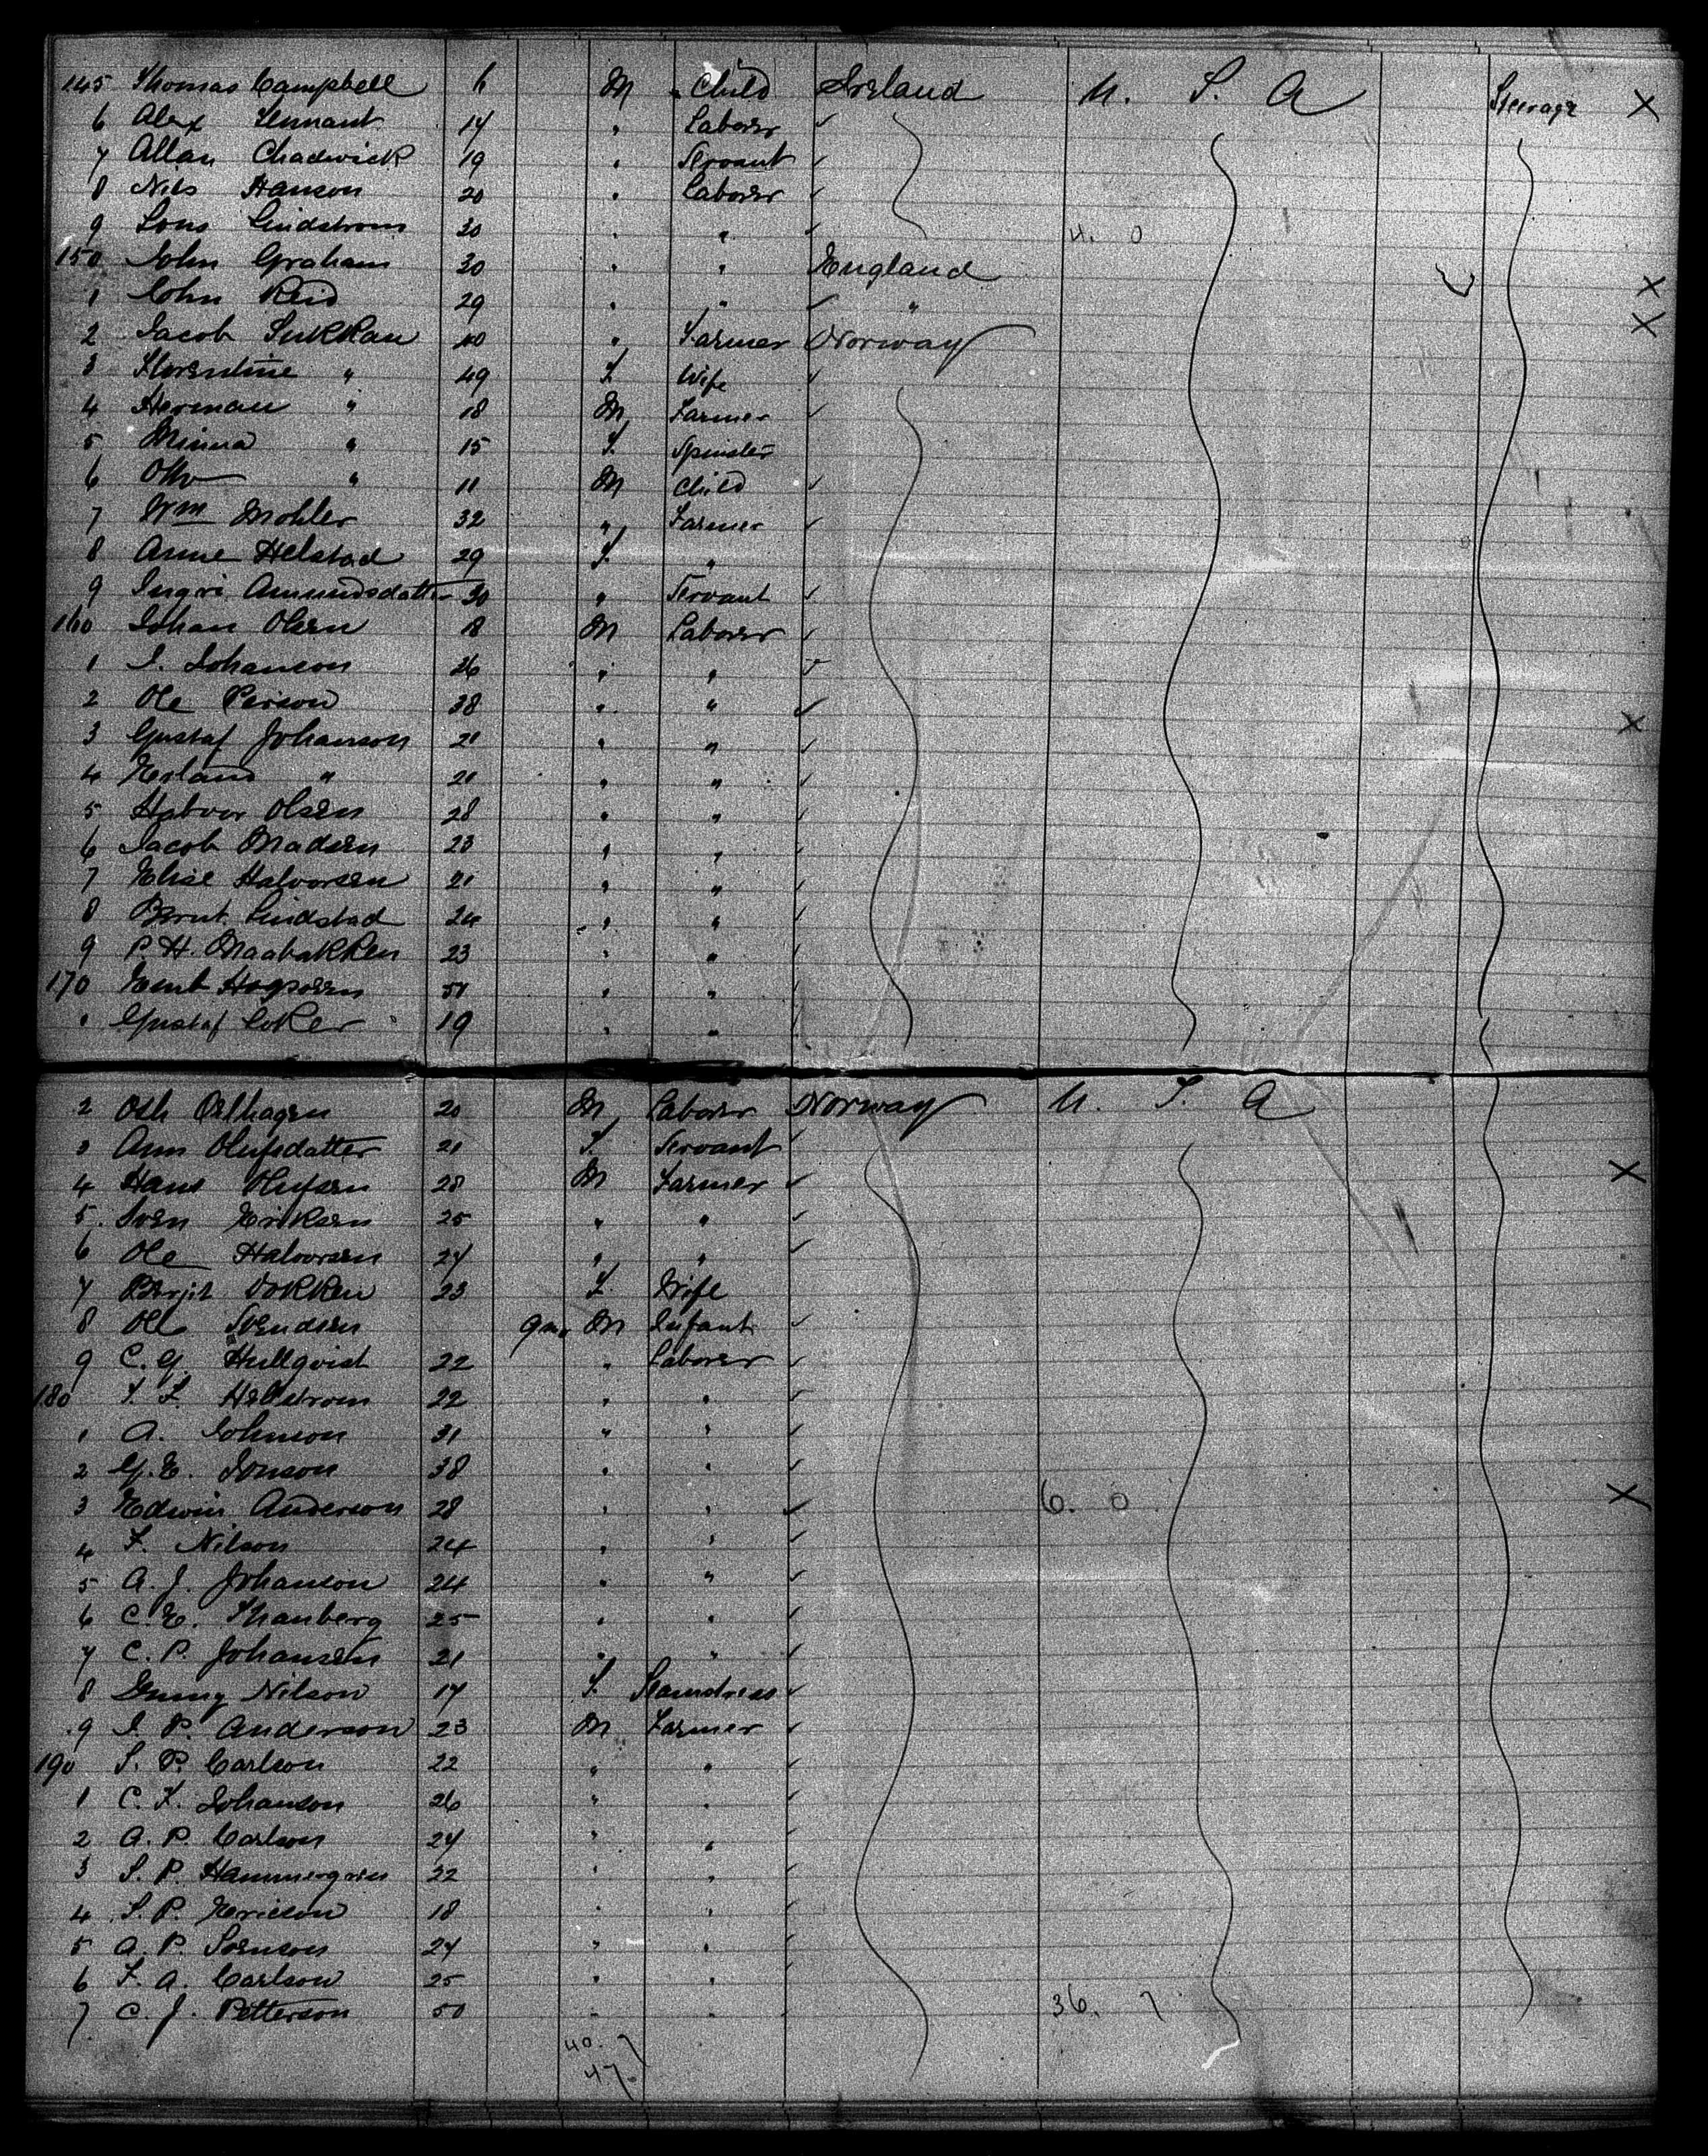 145 Thomas Campbell 6 M " Child Ireland U. S. A Steerage X
6 Alex Tennant 14 " Laborer ✓
7 Allan Chadwick 19 " Servant ✓
8 Nils Hanson 20 " Laborer ✓
9 Lindstrom 30 " " ✓ 4. 0
150 John Graham 30 " " England X
1 John Reid 29 " " ✓ " X
2 Jacob 40 " Farmer Norway
3 Florentine " 49 F. Wife ✓
4 Herman " 18 M Farmer ✓
5 Minna " 15 F. Spinster
6 Otto " 11 M Child ✓
7 Wm Mohler 32 " Farmer ✓
8 Anne Helstad 29 F. "
9 Ingri Amundsdatter 30 " Servant ✓
160 Johan Olsen 18 M Laborer ✓
1 I. Johanson 26 " " ✓
2 Ole Person 38 " " ✓ X
3 Gustaf Johanson 21 " " ✓
4 Erland " 21 " " ✓
5 Halvor Olsen 28 " " ✓
6 Jacob Madsen 23 " " ✓
7 Elise Halvorsen 21 " " ✓
8 Bernt Lindstad 24 " " ✓
9 P. H. Maabakken 23 " " ✓
170 51 " "
" Gustaf 19 " "
2 20 M Laborer Norway U. S. A
3 Ann Olufsdatter 21 F. Servant ✓
4 Hans Olufsen 28 M Farmer ✓ X
5. Sven Eriksen 25 " " ✓
6 Ole Halvorsen 24 " " ✓
7 Berjit Vokken 23 F. Wife
8 Ole Svendsen 9m. M Infant ✓
9 C. G. Hullqvist 22 " Laborer ✓
180 Helstrom 22 " " ✓
1 A. Johnson 31 " " ✓
2 G. E. Jonson 38 " " ✓
3 Edwin Anderson 28 " " ✓ 6. 0 X
4 F. Nilson 24 " " ✓
5 A. J. Johanson 24 " " ✓
6 C. E. 25 " " ✓
7 C. P. Johansen 21 " " ✓
8 Nilson 17 F. ✓
9 I. P. Anderson 23 M Farmer ✓
190 S. P. Carlson 22 " " ✓
1 C. F. Johanson 26 " " ✓
2 A. P. Carlson 24 " " ✓
3 S. P. Hammergren 22 " " ✓
4 S. P. Ericson 18 " " ✓
5 A. P. Sornson 24 " " ✓
6 F. A. Carlson 25 " " ✓
7. C. J. Petterson 50 " " 36. 7
40. 7
47.